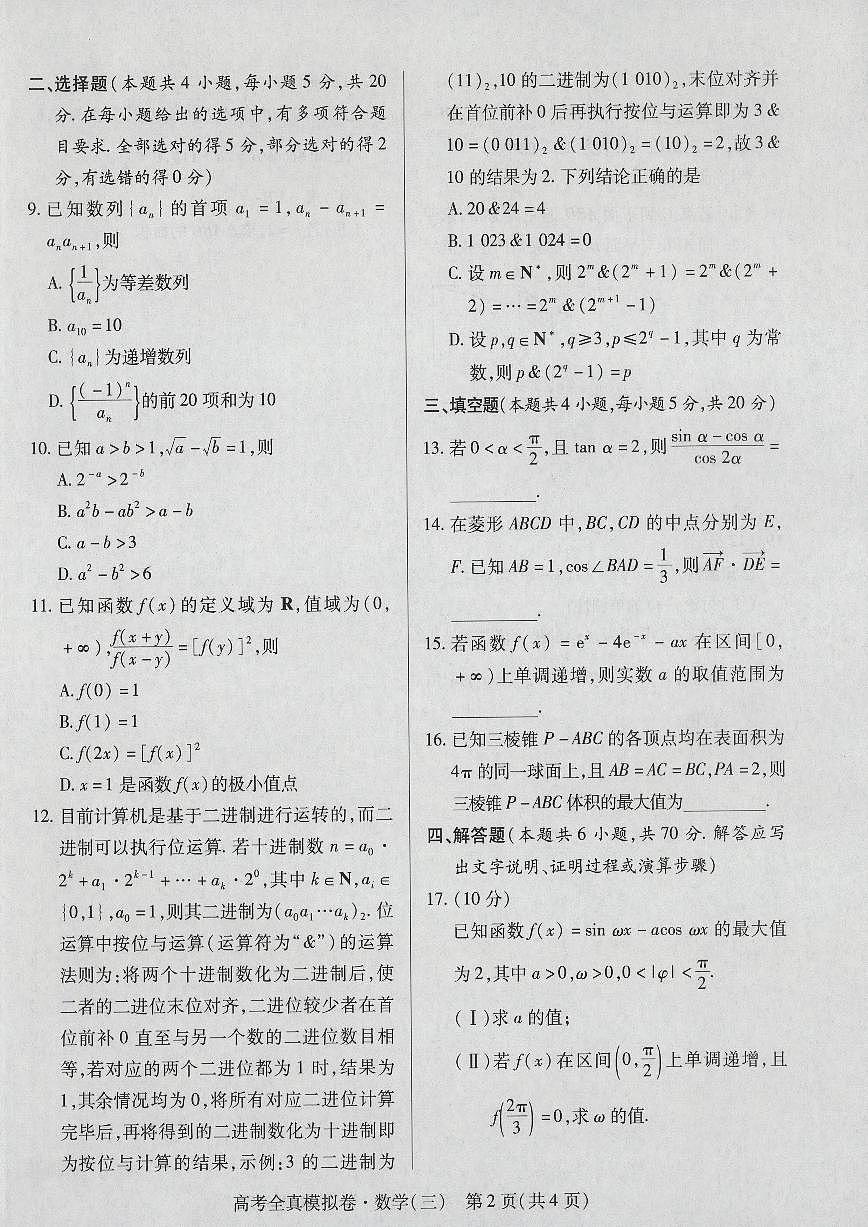 二、选择题(本题共 4 小题,每小题 5 分,共 20
分.在每小题给出的选项中,有多项符合题
目要求.全部选对的得 5 分,部分选对的得 2
分,有选错的得 0 分)
9. 已知数列{aₙ}的首项 a₁ = 1, aₙ - aₙ₊₁ =
aₙaₙ₊₁,则
A. {1/aₙ}为等差数列
B. a₁₀ = 10
C. {aₙ}为递增数列
D. {(-1)ⁿ/aₙ}的前 20 项和为 10
10. 已知 a > b > 1, √a - √b = 1,则
A. 2⁻ᵃ > 2⁻ᵇ
B. a²b - ab² > a - b
C. a - b > 3
D. a² - b² > 6
11. 已知函数 f(x)的定义域为 R,值域为(0,
+∞), f(x+y)/f(x-y) = [f(y)]²,则
A. f(0) = 1
B. f(1) = 1
C. f(2x) = [f(x)]²
D. x = 1 是函数 f(x)的极小值点
12. 目前计算机是基于二进制进行运转的,而二
进制可以执行位运算.若十进制数 n = a₀ ·
2ᵏ + a₁ · 2ᵏ⁻¹ + ⋯ + aₖ · 2⁰,其中 k∈N, aᵢ∈
{0,1}, a₀ = 1,则其二进制为(a₀a₁⋯aₖ)₂.位
运算中按位与运算(运算符为“&”)的运算
法则为:将两个十进制数化为二进制后,使
二者的二进位末位对齐,二进位较少者在首
位前补 0 直至与另一个数的二进位数目相
等,若对应的两个二进位都为 1 时,结果为
1,其余情况均为 0,将所有对应二进位计算
完毕后,再将得到的二进制数化为十进制即
为按位与计算的结果,示例:3 的二进制为
(11)₂,10 的二进制为(1 010)₂,末位对齐并
在首位前补 0 后再执行按位与运算即为 3 &
10 = (0 011)₂ & (1 010)₂ = (10)₂ = 2,故 3 &
10 的结果为 2. 下列结论正确的是
A. 20 & 24 = 4
B. 1 023 & 1 024 = 0
C. 设 m∈N*,则 2ᵐ & (2ᵐ + 1) = 2ᵐ & (2ᵐ +
2) = ⋯ = 2ᵐ & (2ᵐ⁺¹ - 1)
D. 设 p,q∈N*, q≥3, p≤2^q - 1,其中 q 为常
数,则 p & (2^q - 1) = p
三、填空题(本题共 4 小题,每小题 5 分,共 20 分)
13. 若 0 < α < π/2,且 tan α = 2,则 (sin α - cos α)/(cos 2α) =
________.
14. 在菱形 ABCD 中, BC, CD 的中点分别为 E,
F. 已知 AB = 1, cos∠BAD = 1/3,则 AF→ · DE→ =
________.
15. 若函数 f(x) = eˣ - 4e⁻ˣ - ax 在区间[0,
+∞)上单调递增,则实数 a 的取值范围为
________.
16. 已知三棱锥 P - ABC 的各顶点均在表面积为
4π 的同一球面上,且 AB = AC = BC, PA = 2,则
三棱锥 P - ABC 体积的最大值为________.
四、解答题(本题共 6 小题,共 70 分.解答应写
出文字说明、证明过程或演算步骤)
17. (10 分)
已知函数 f(x) = sin ωx - acos ωx 的最大值
为 2,其中 a > 0, ω > 0, 0 < |φ| < π/2.
(Ⅰ)求 a 的值;
(Ⅱ)若 f(x)在区间(0, π/2)上单调递增,且
f(2π/3) = 0,求 ω 的值.
高考全真模拟卷 · 数学(三) 第 2 页(共 4 页)